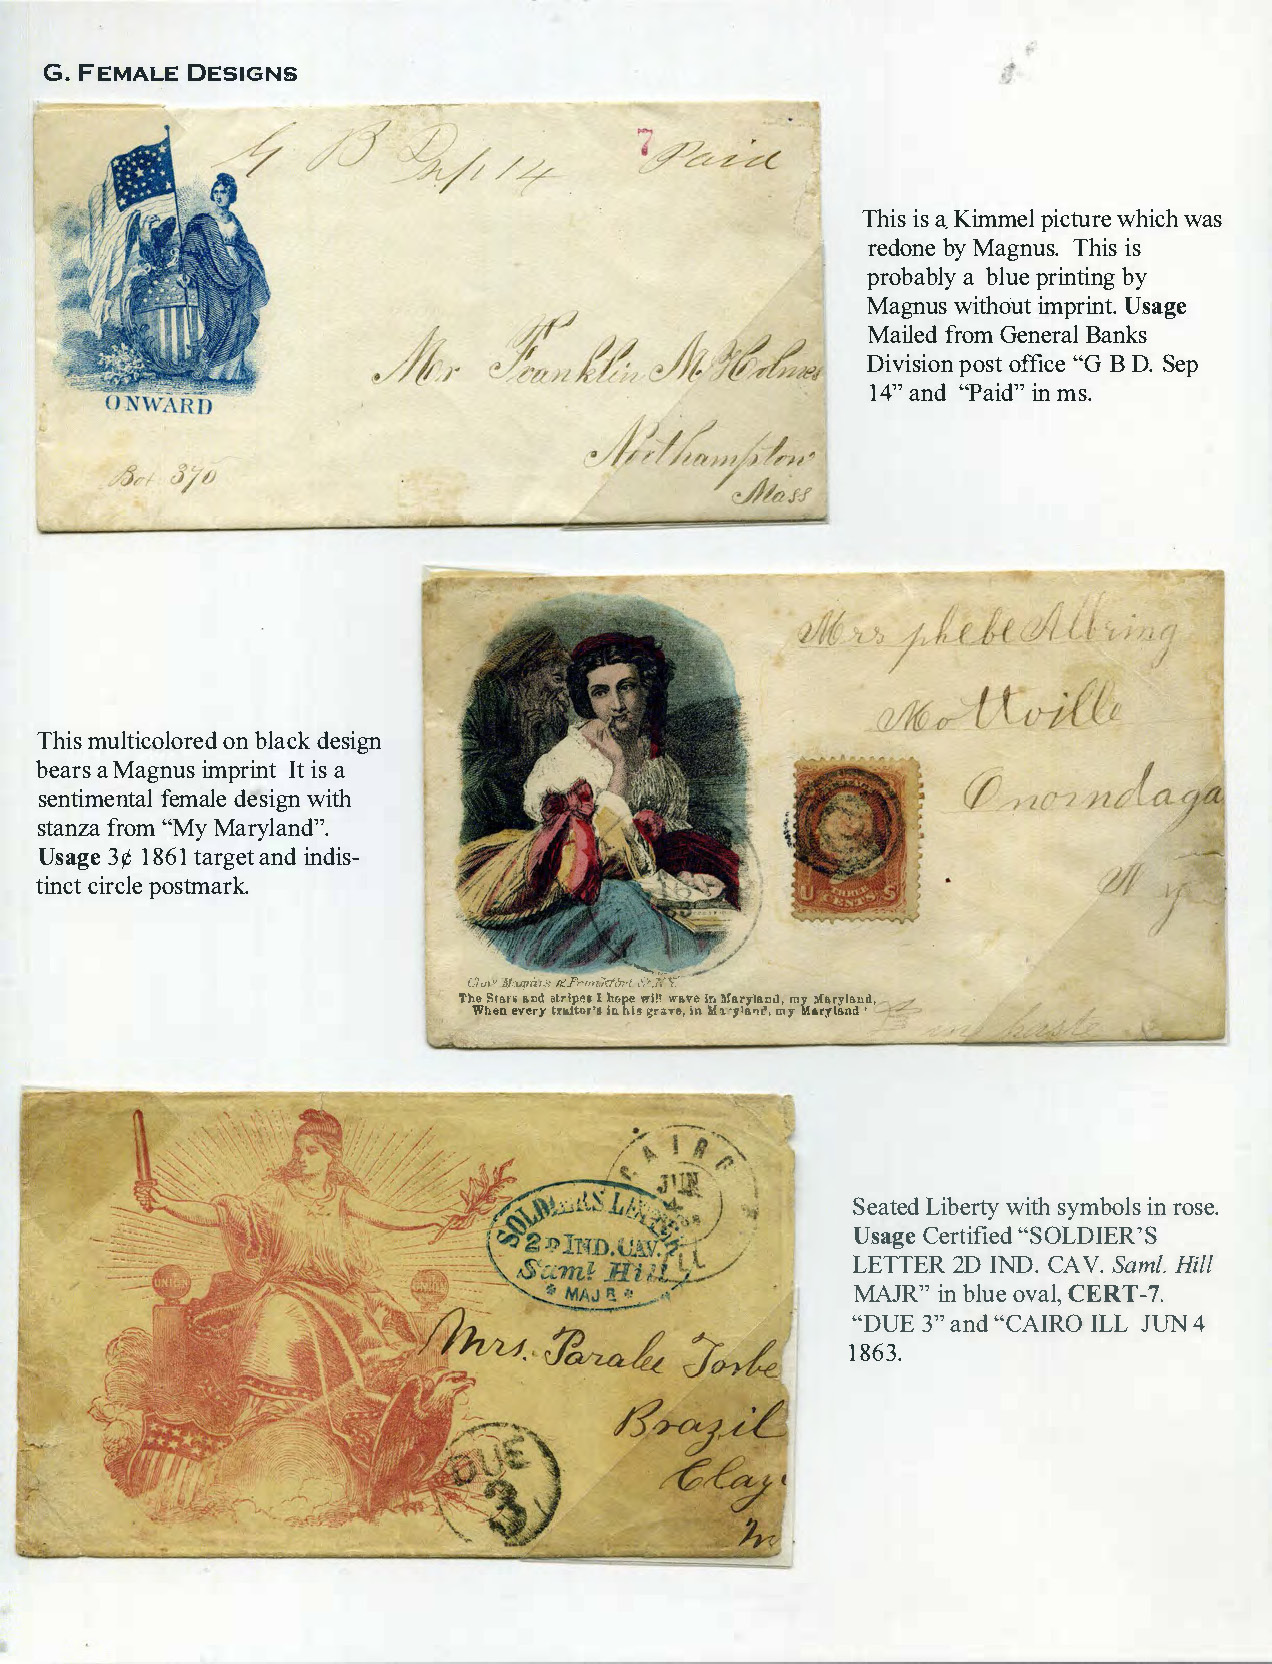 G. FEMALE DESIGNS
G B D Sep 14 7 Paid
ONWARD
Mr Franklin M Holmes
Northampton
Mass
370
This is a Kimmel picture which was
redone by Magnus. This is
probably a blue printing by
Magnus without imprint. Usage
Mailed from General Banks
Division post office “G B D. Sep
14” and “Paid” in ms.
This multicolored on black design
bears a Magnus imprint It is a
sentimental female design with
stanza from “My Maryland”.
Usage 3¢ 1861 target and indis-
tinct circle postmark.
Mrs phebe Albring
Mottville
Onorndaga
N Y
U THREE CENTS S
Chas Magnus 12 Frankfort St N.Y.
The Stars and stripes I hope will wave in Maryland, my Maryland,
When every traitor's in his grave, in Maryland, my Maryland
in haste
CAIRO
JUN
4
ILL
SOLDIERS LETTER
2D IND. CAV.
Saml Hill
* MAJR *
UNION
Mrs. Paralee Torbe
Brazil
Clay
DUE
3
Seated Liberty with symbols in rose.
Usage Certified “SOLDIER’S
LETTER 2D IND. CAV. Saml. Hill
MAJR” in blue oval, CERT-7.
“DUE 3” and “CAIRO ILL JUN 4
1863.